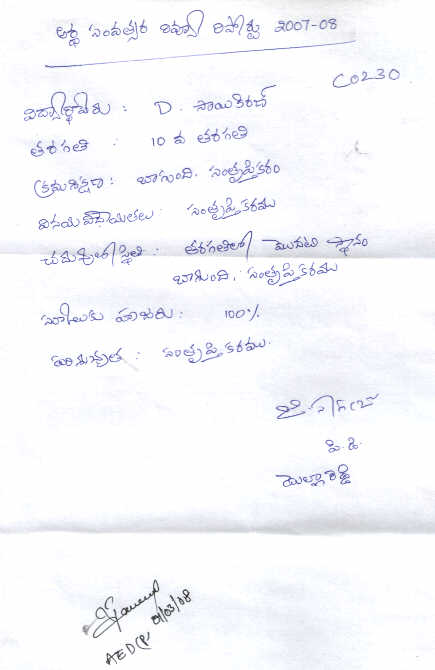 అర్థ సంవత్సర రిపోర్టు 2007-08
C0230
విద్యార్థి పేరు : D. సాయికిరణ్
తరగతి : 10 వ తరగతి
క్రమశిక్షణ : బాగుంది. సంతృప్తికరం
వినయవిధేయతలు : సంతృప్తికరము
చదువులో స్థితి : తరగతిలో మొదటి స్థానం
బాగుంది, సంతృప్తికరము
స్కూలుకు హాజరు : 100%
పరిశుభ్రత : సంతృప్తికరము.
పి.డి.
ఎల్లారెడ్డి
01/03/08
AEDCP